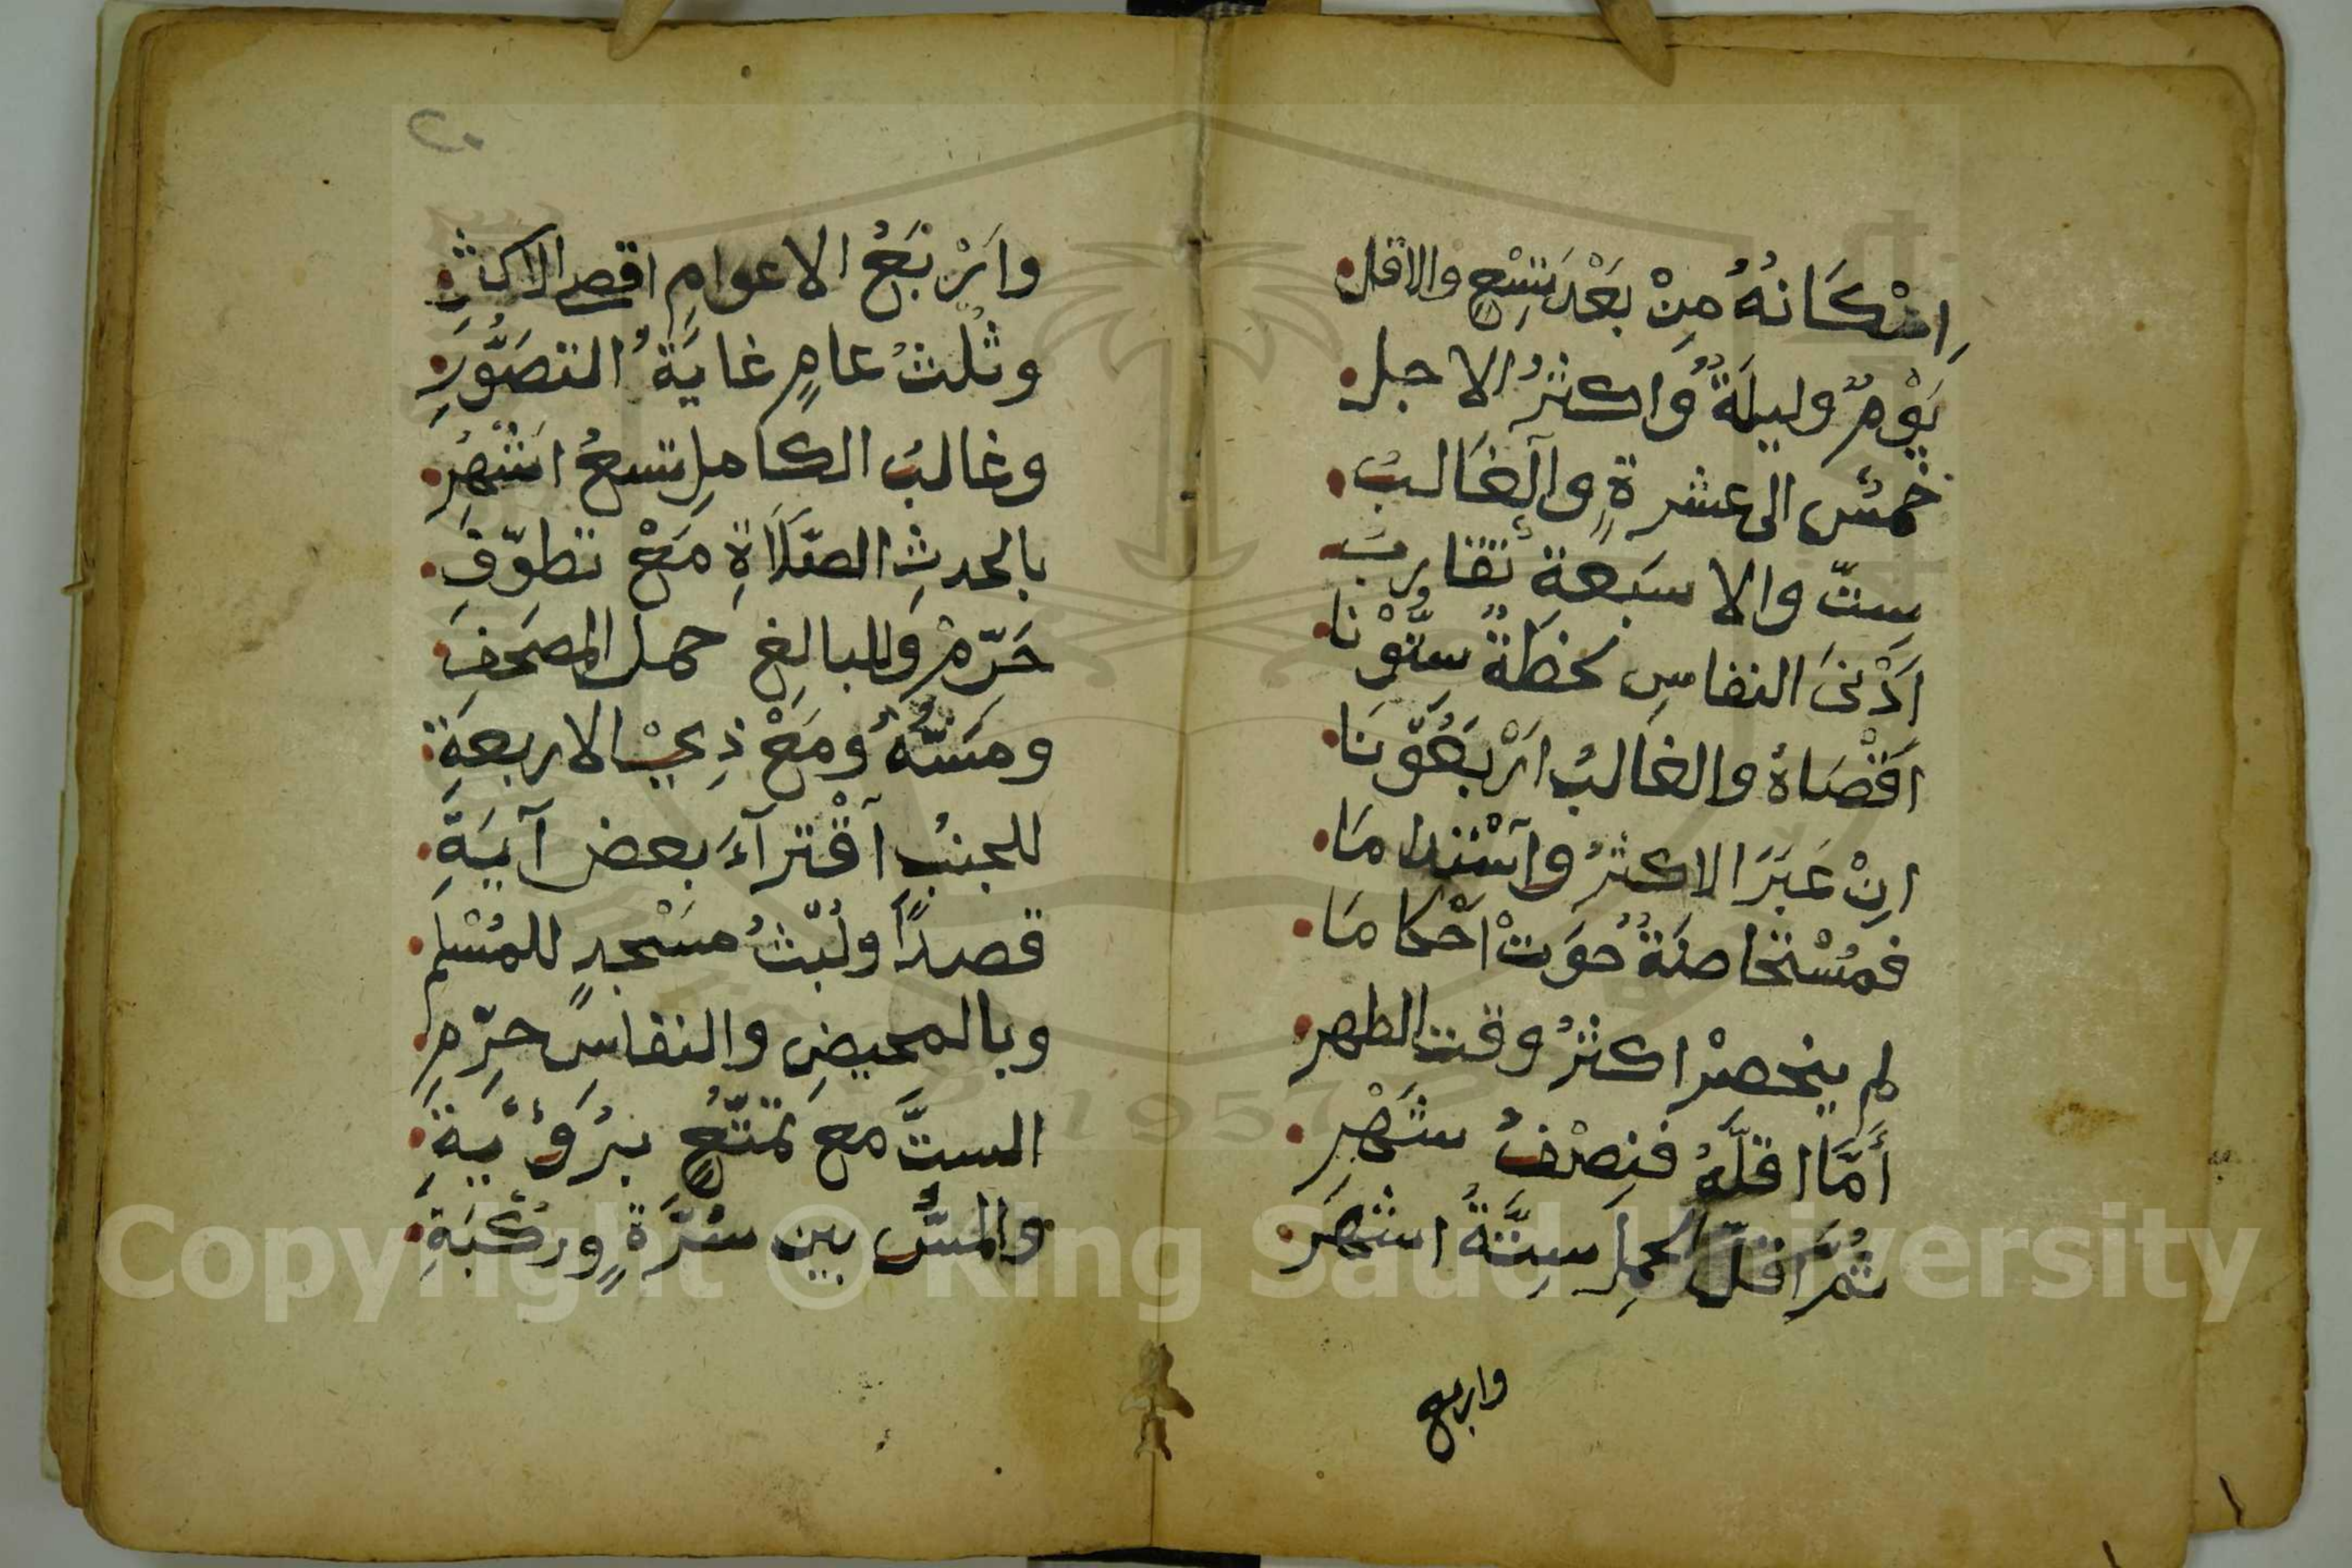 اِمْكَانُهُ مِنْ بَعْدِ تِسْعٍ والاقل
يَوْمٌ وليلَةٌ وَاكثَرُ الاجل
خمسٌ الى عشرةٍ وَالغَالبُ
سِتٌّ والا سَبعةٌ تقاربُ
اَدْنَى النفاسِ لحْظَةٌ سِتُّوْنَا
اَقْصَاهُ والغَالبُ اَرْبَعُوْنَا
اِنْ عَبَرَ الاكثرُ وَاسْتَدَامَا
فمُسْتَحَاضَةٌ حَوَتْ اَحْكامَا
لم ينحصرْ اكثرُ وقت الطهر
أَمَّا اقلُّهُ فنِصْفُ شَهْرِ
ثُمَّ اقلّ الحملِ سِتَّةُ اشهرَ
واربع
٢٠
وَاَرْبَعُ الاعوامِ اقصى الاكثرِ
وثُلثُ عامٍ غايَةُ التصَوُّرِ
وغالبُ الكاملِ تسعُ اشْهُرِ
بالحدثِ الصَّلَاةِ مَعْ تطوّفِ
حَرِّمْ وَللبالِغِ حمل المصحَفِ
ومَسَّهُ وَمَعْ ذِيْ الاربعَةِ
للجنبِ اَقْترآءَ بعض آيَةِ
قصدًا ولُبْثُ مسْجدٍ للمُسْلم
وبالمحيضِ والنفاسِ حرِّمِ
الستَّ مع تمَتُّعٍ برُؤْيَةِ
والمسُّ بين سُرَّةٍ ورُكْبَةِ
Copyright © King Saud University
1957